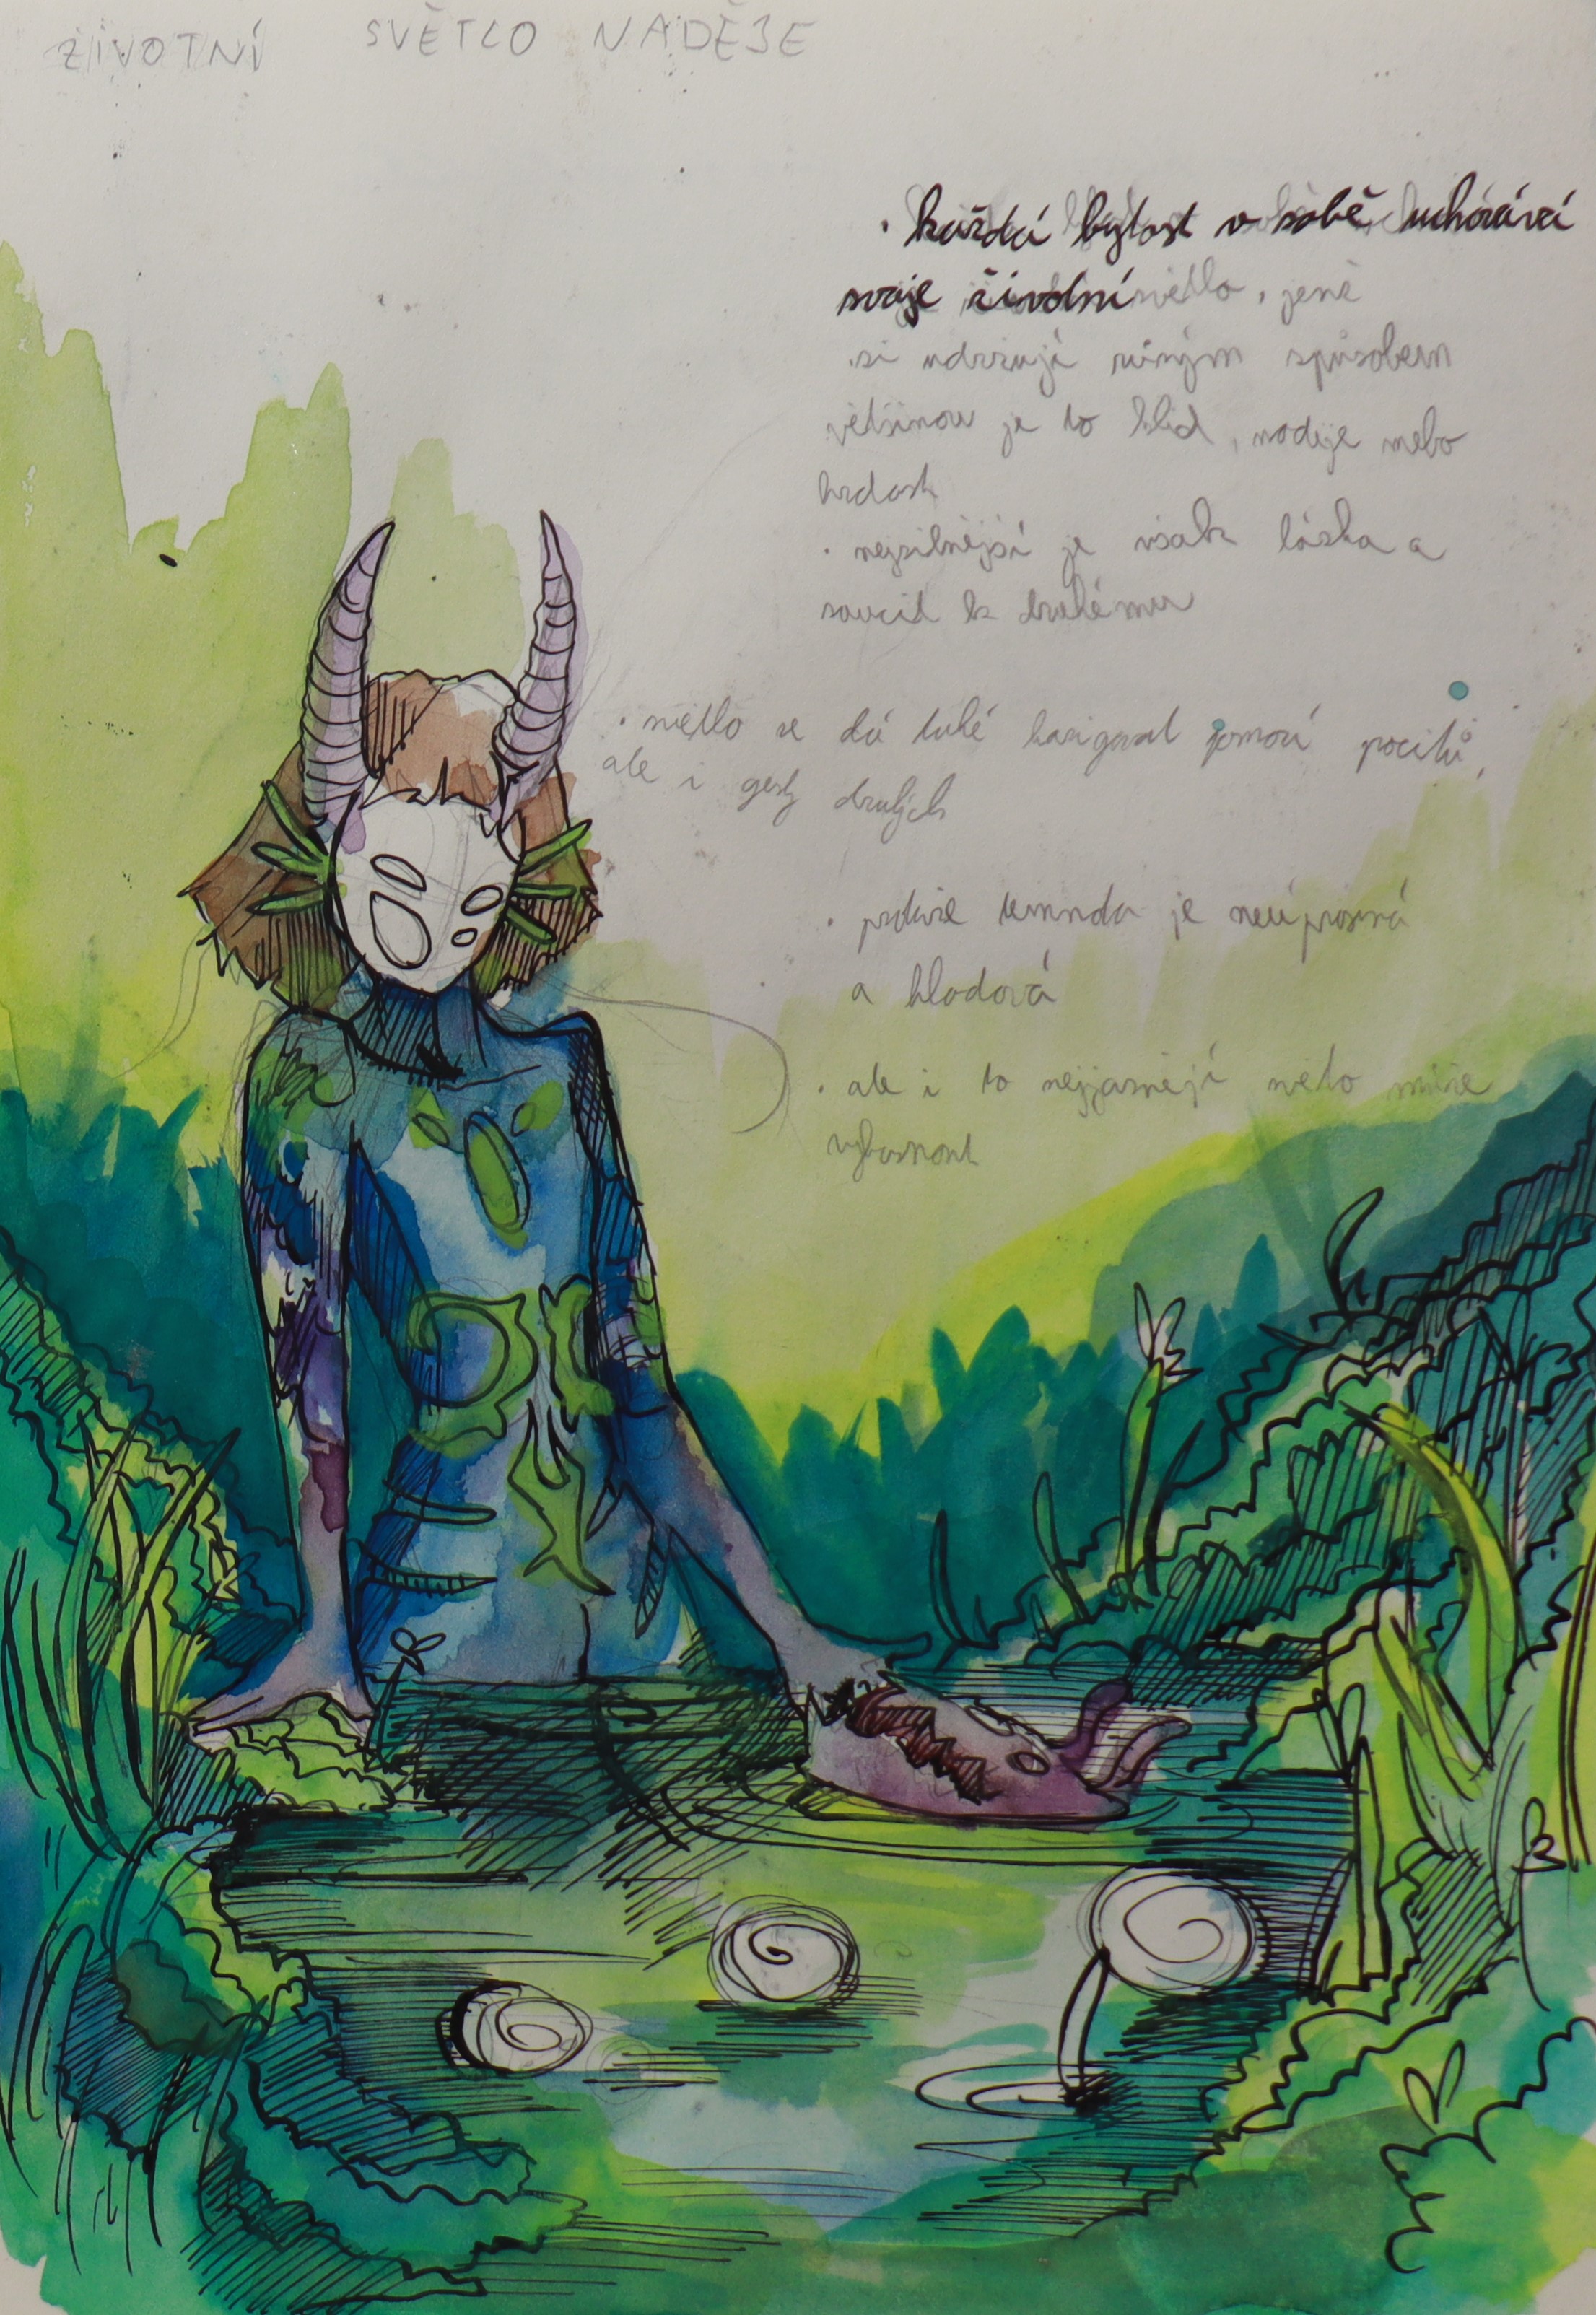 ŽIVOTNÍ SVĚTLO NADĚJE
· každá bytost v sobě uchovává
svoje životní světlo, jenž
si udržují různým způsobem
většinou je to klid, naděje nebo
hrdost
· nejsilnější je však láska a
soucit k druhému
· světlo se dá také pomocí pocitů,
ale i gesty druhých
· protože temnota je neúprosná
a hladová
· ale i to nejjasnější světlo může
vyhasnout